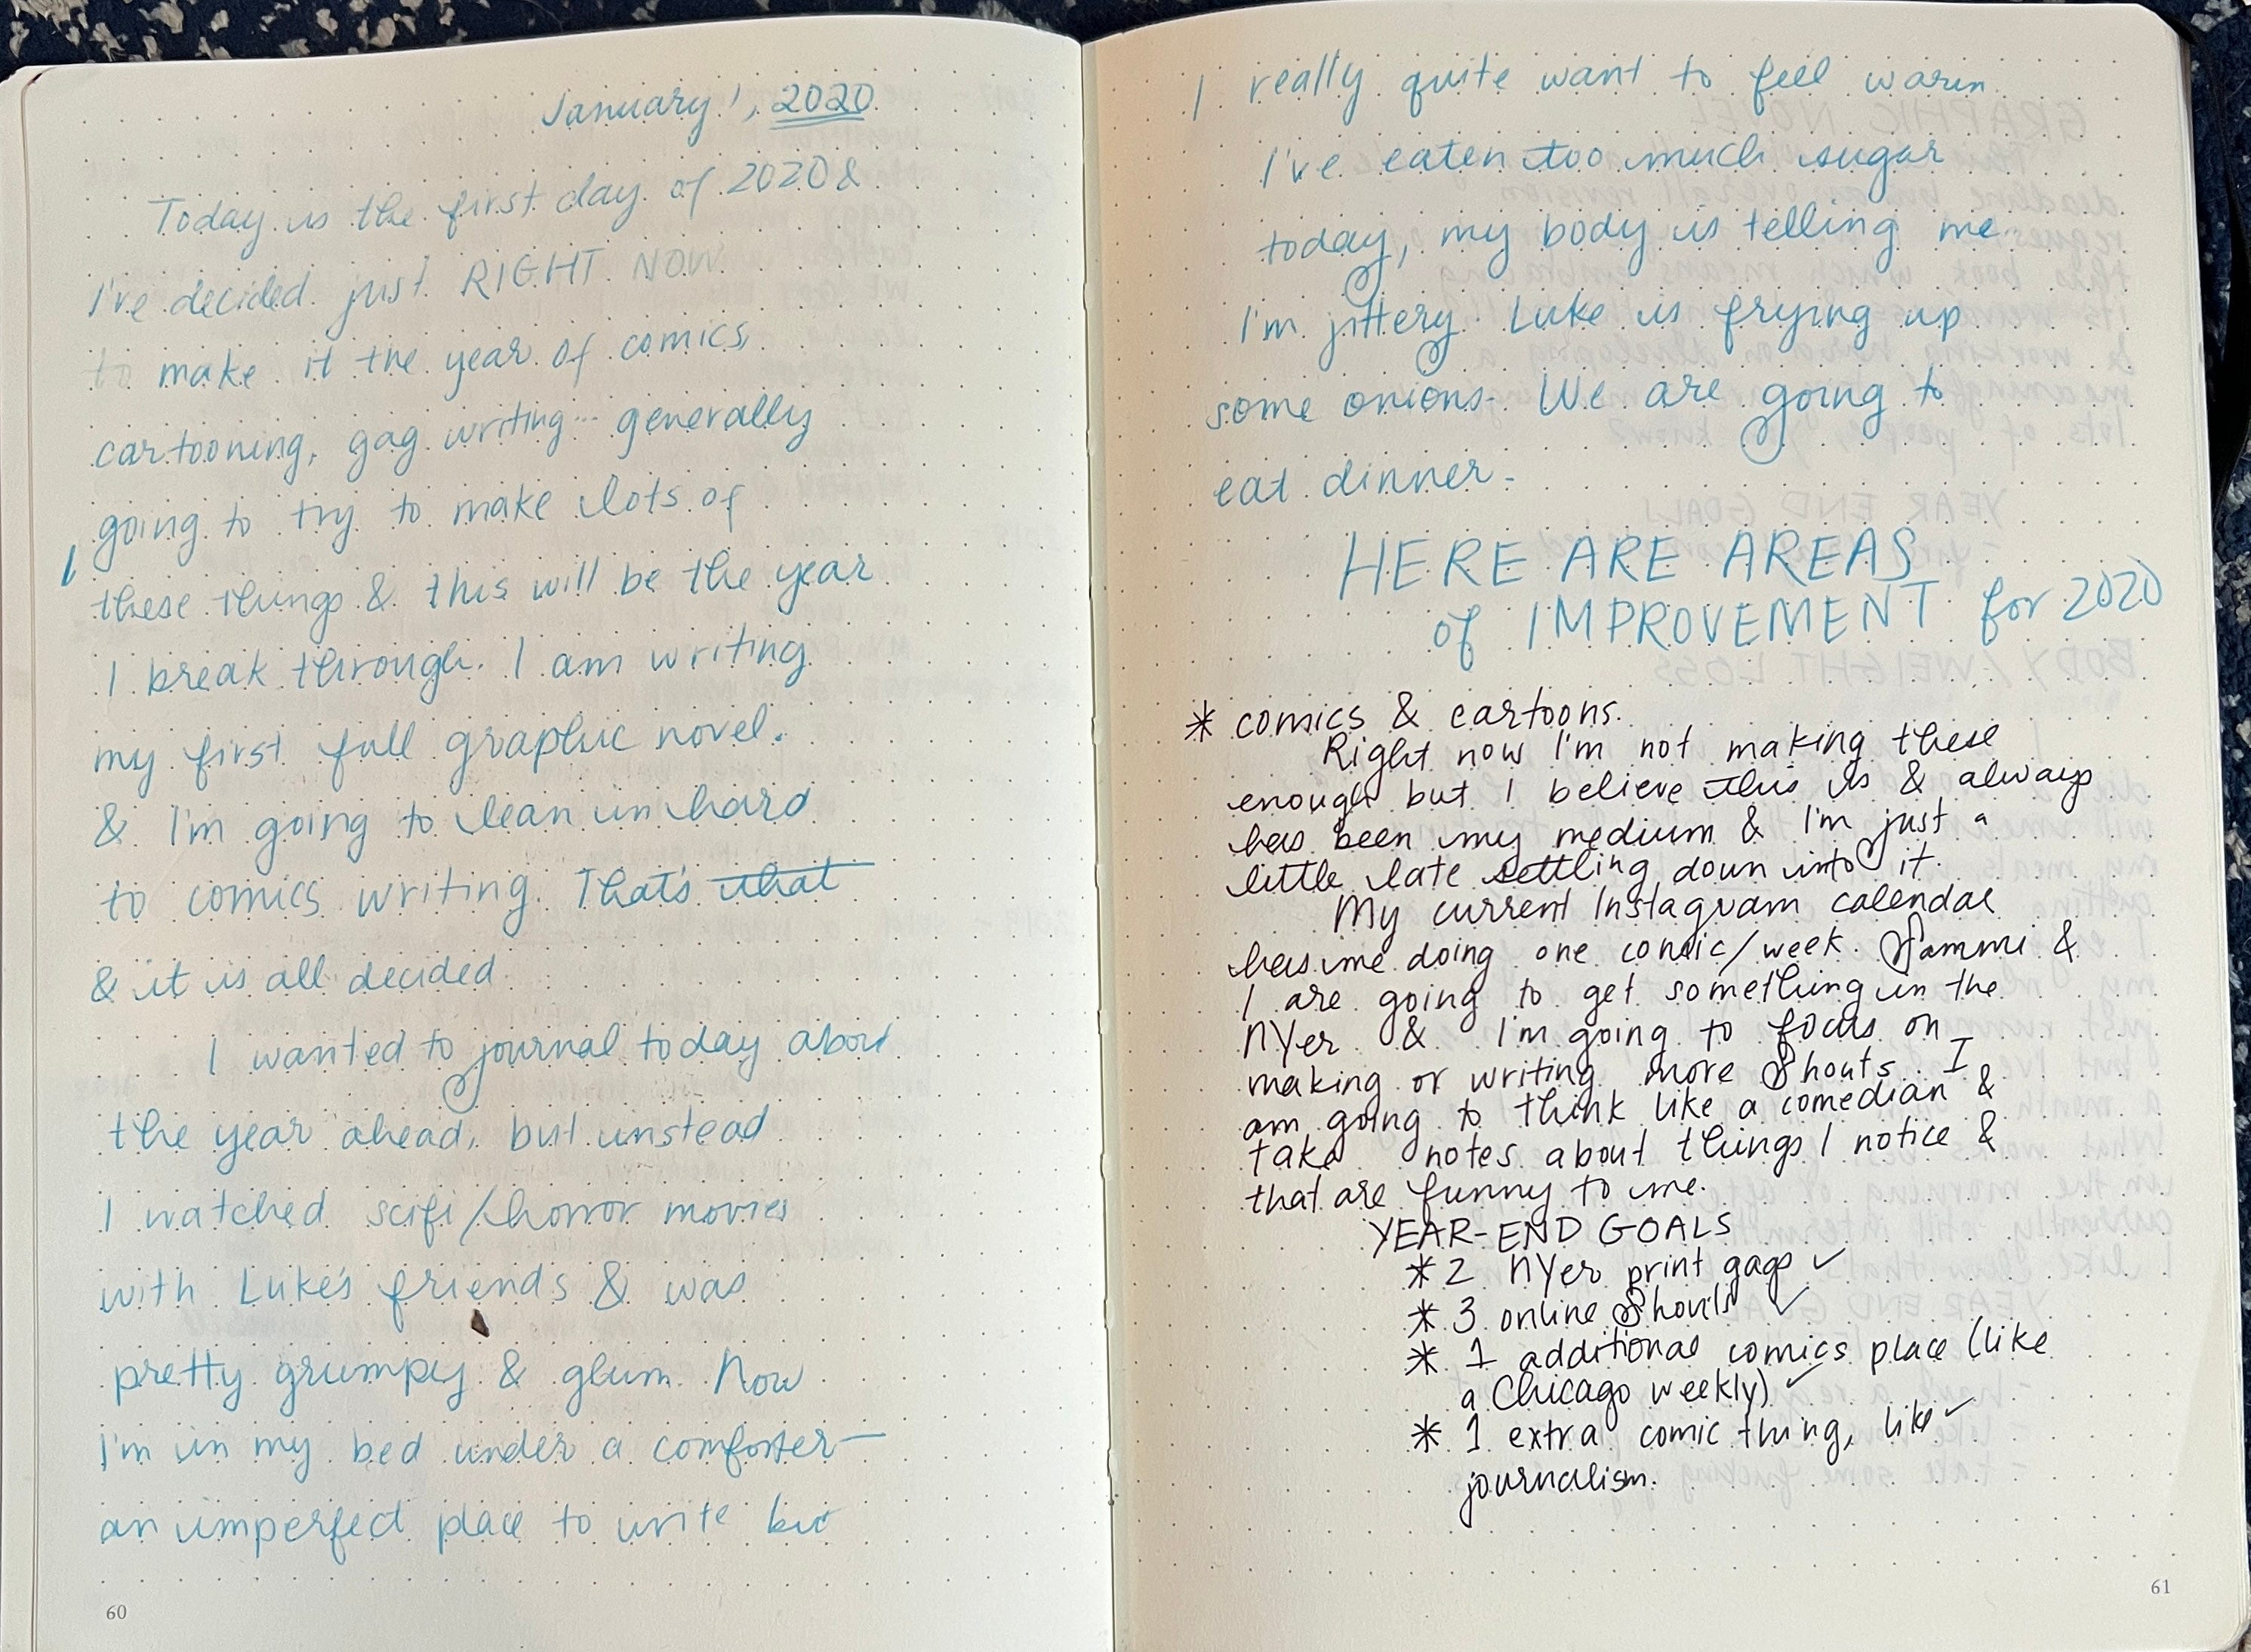 January 1, 2020
Today is the first day of 2020 &
I've decided just RIGHT NOW
to make it the year of comics,
cartooning, gag writing... generally
going to try to make lots of
these things & this will be the year
I break through. I am writing
my first full graphic novel.
& I'm going to lean in hard
to comics writing. That's that
& it is all decided.
I wanted to journal today about
the year ahead, but instead
I watched scifi/horror movies
with Luke's friends & was
pretty grumpy & glum. Now
I'm in my bed under a comforter—
an imperfect place to write but
60
I really quite want to feel warm.
I've eaten too much sugar
today, my body is telling me.
I'm jittery. Luke is frying up
some onions. We are going to
eat dinner.
HERE ARE AREAS
of IMPROVEMENT for 2020
* comics & cartoons.
Right now I'm not making these
enough but I believe this is & always
has been my medium & I'm just a
little late settling down into it.
My current Instagram calendar
has me doing one comic/week. Sammi &
I are going to get something in the
NYer & I'm going to focus on
making or writing more Shouts. I
am going to think like a comedian &
take notes about things I notice &
that are funny to me.
YEAR-END GOALS
* 2 NYer print gags ✓
* 3 online Shouts ✓
* 1 additional comics place (like
a Chicago weekly) ✓
* 1 extra comic thing, like ✓
journalism.
61